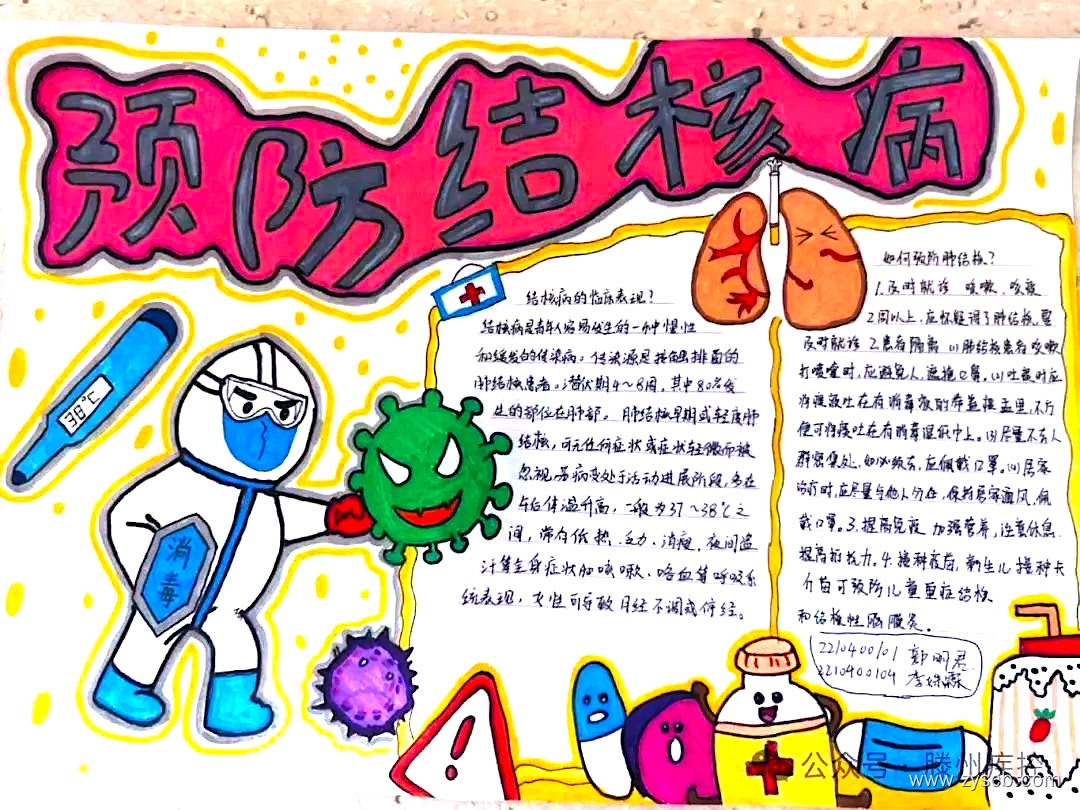 预防结核病
38℃
消毒
结核病的临床表现?
结核病是青年人容易发生的一种慢性
和缓发的传染病。传染源是接触排菌的
肺结核患者。潜伏期4~8周,其中80%发
生的部位在肺部。肺结核早期或轻度肺
结核,可无任何症状或症状轻微而被
忽视,若病变处于活动进展阶段,多在
午后体温升高,一般为37~38℃之
间,常有低热、乏力、消瘦、夜间盗
汗等全身症状和咳嗽、咯血等呼吸系
统表现,女性可导致月经不调或停经。
如何预防肺结核?
1.及时就诊 咳嗽、咳痰
2周以上,应怀疑得了肺结核,要
及时就诊 2.患者隔离 (1)肺结核患者咳嗽
打喷嚏时,应避免人,遮掩口鼻,(2)吐痰时应
将痰液吐在有消毒液的带盖痰盂里,不方
便可将痰吐在有消毒湿纸巾上。(3)尽量不去人
群密集处,如必须去,应佩戴口罩。(4)居家
治疗时,应尽量与他人分住,保持居室通风,佩
戴口罩。3.提高免疫 加强营养,注意休息
提高抵抗力。4.接种疫苗,新生儿接种卡
介苗可预防儿童重症结核
和结核性脑膜炎。
2210400101 郭明君
2210400104 李
公众号·滕州疾控
www.zyscb.com